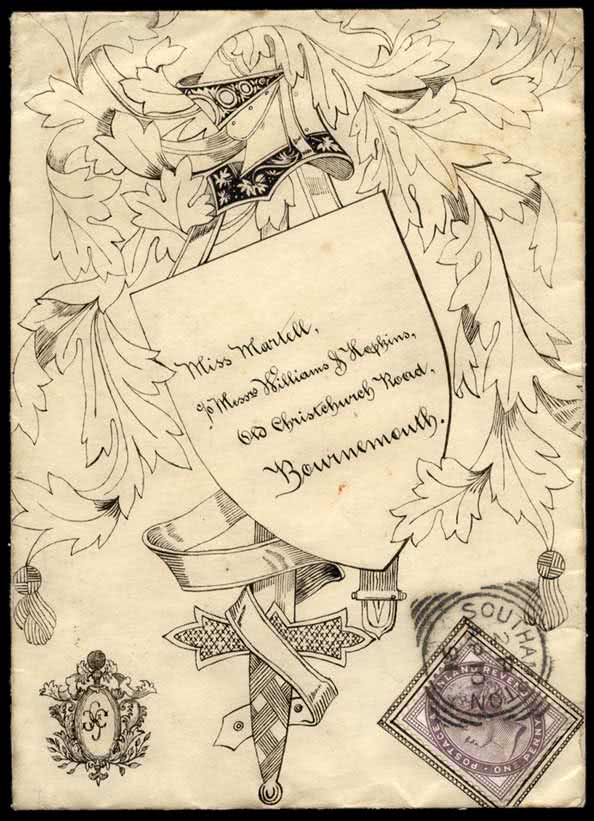 Miss Martell,
c/o Messrs Williams & Hopkins,
Old Christchurch Road,
Bournemouth.
SOUTHA
NO
INLAND REVENUE
POSTAGE
ONE PENNY